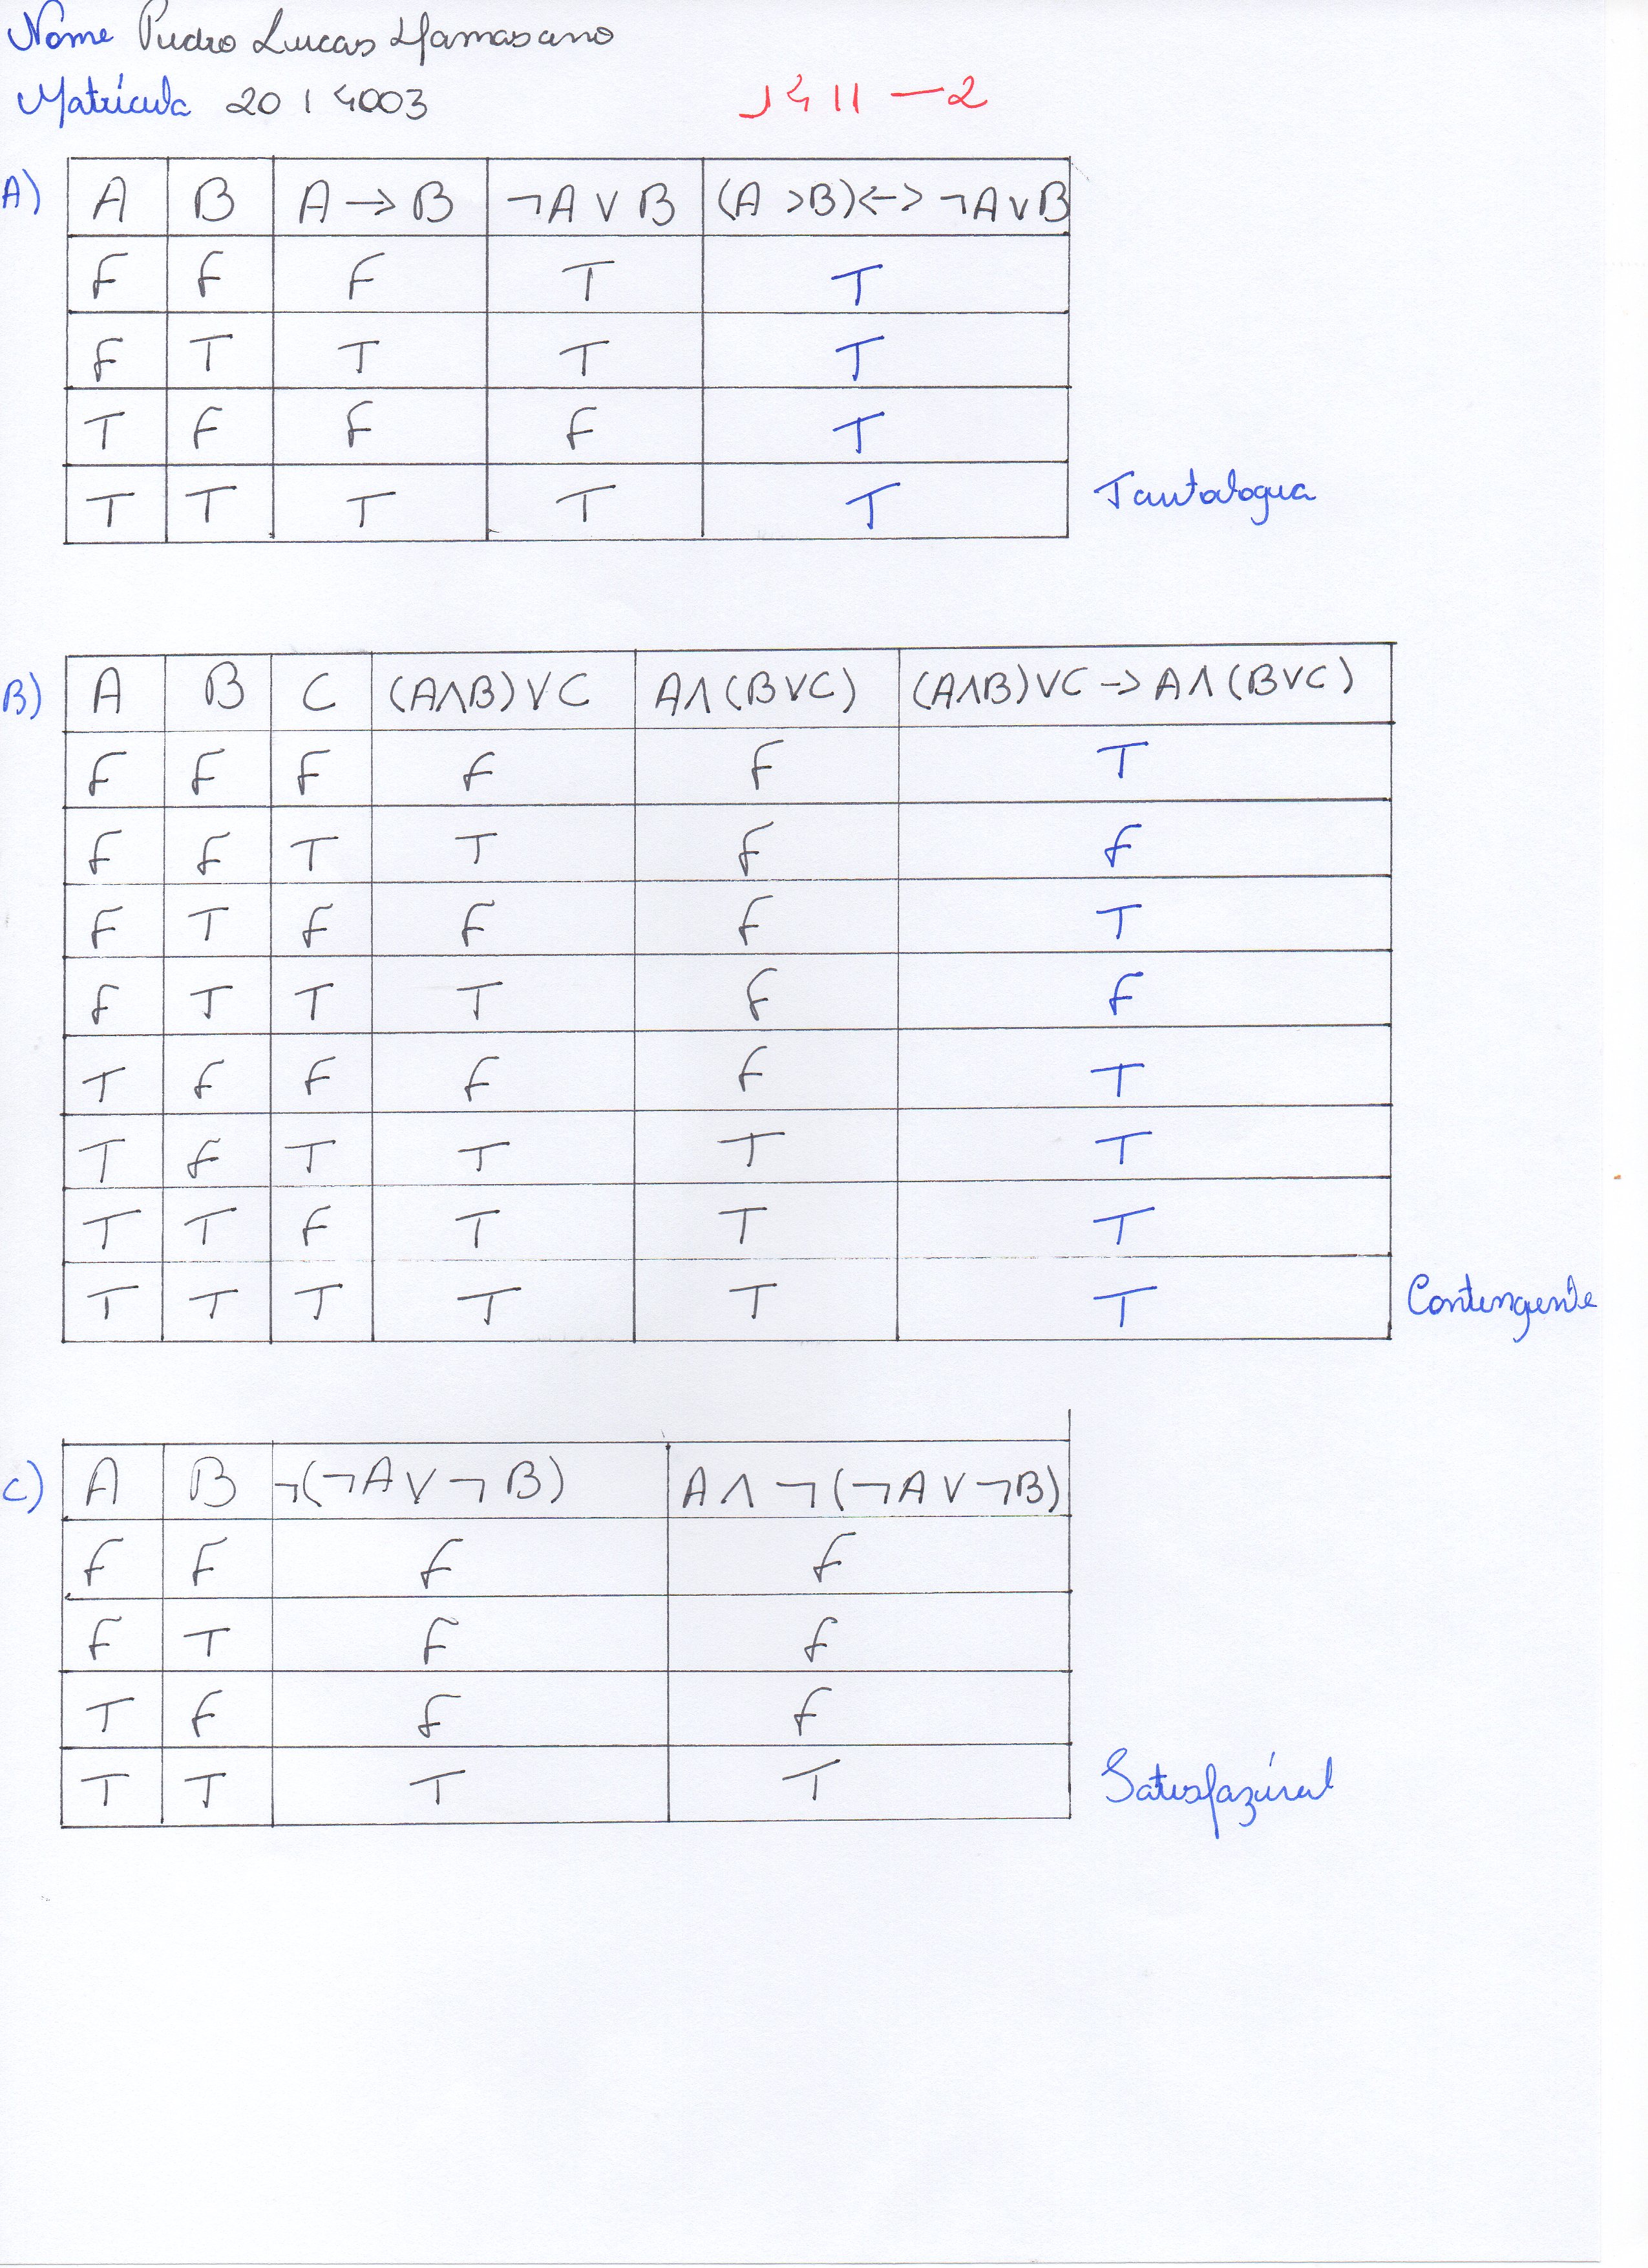 Nome Pedro Lucas
Matrícula 20 1 4003
11 — 2
A) A B A → B ¬A ∨ B (A >B)<-> ¬A∨B
F F F T T
F T T T T
T F F F T
T T T T T Tautologia
B) A B C (A∧B)∨C A∧(B∨C) (A∧B)∨C -> A∧(B∨C)
F F F F F T
F F T T F F
F T F F F T
F T T T F F
T F F F F T
T F T T T T
T T F T T T
T T T T T T Contingente
C) A B ¬(¬A∨¬B) A∧¬(¬A∨¬B)
F F F F
F T F F
T F F F
T T T T Satisfazível